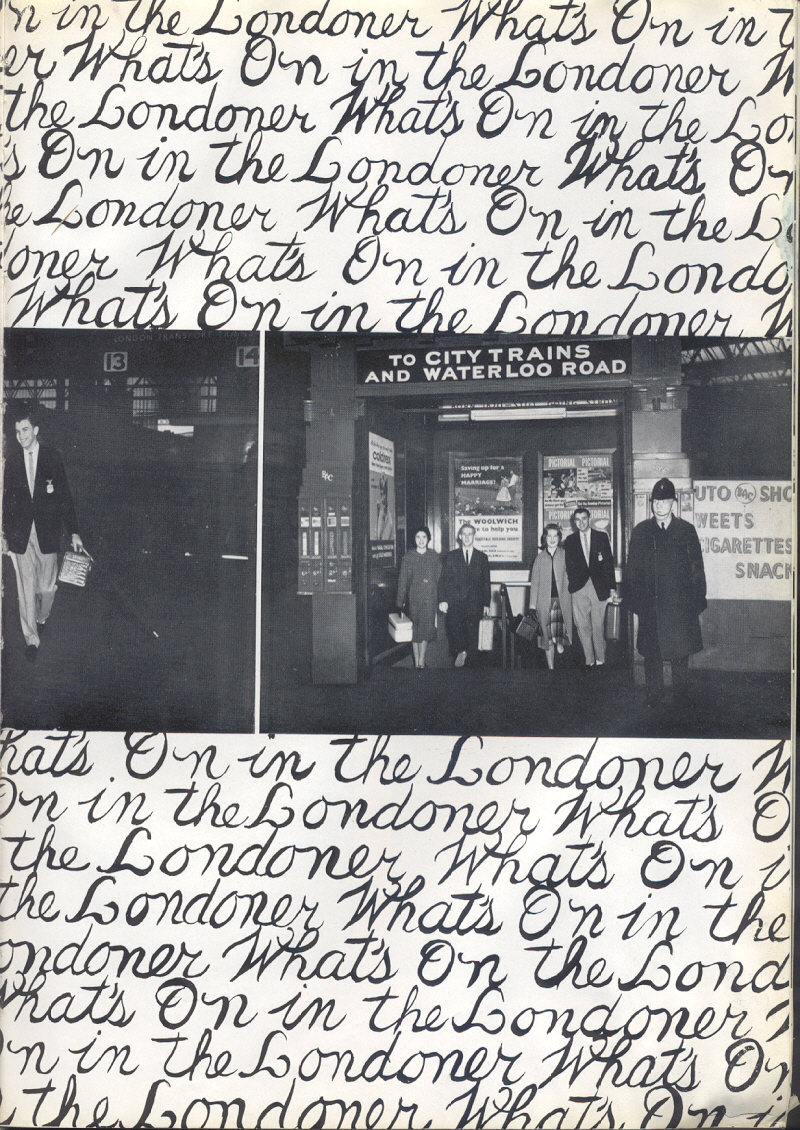 n in the Londoner What's On in t
er What's On in the Londoner W
the Londoner What's On in the Lo
s On in the Londoner What's On
he Londoner What's On in the L
oner What's On in the Londo
What's On in the Londoner W
LONDON TRANSPORT
13
14
TO CITY TRAINS
AND WATERLOO ROAD
coldrex
Saving up for a
HAPPY
MARRIAGE?
The WOOLWICH
is here to help you
PICTORIAL PICTORIAL
PICTORIAL
BAC
UTO BAC SHO
WEETS
CIGARETTES
SNACK
hat's On in the Londoner W
On in the Londoner What's O
the Londoner What's On i
the Londoner What's On in the
ondoner What's On the Lond
What's On in the Londoner
n in the Londoner What's On
the Londoner What's On i